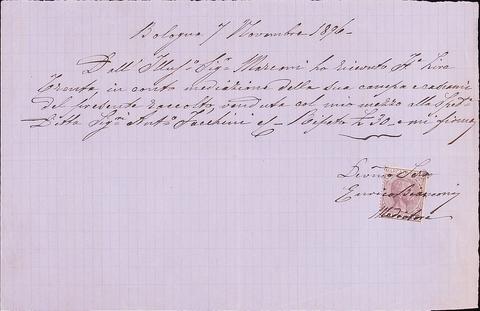 Bologna 7 Novembre 1896-
Dall' Illus. Sig. Marconi ho ricevuto Lire
Trenta in conto mediazione della sua canapa e
del presente raccolto, venduta col mio mezzo alla Sped.
Ditta Sig. Ant. Facchini e Ripeto £ 30. e mi firmo
Devmo Servo
Enrico
Mediatore